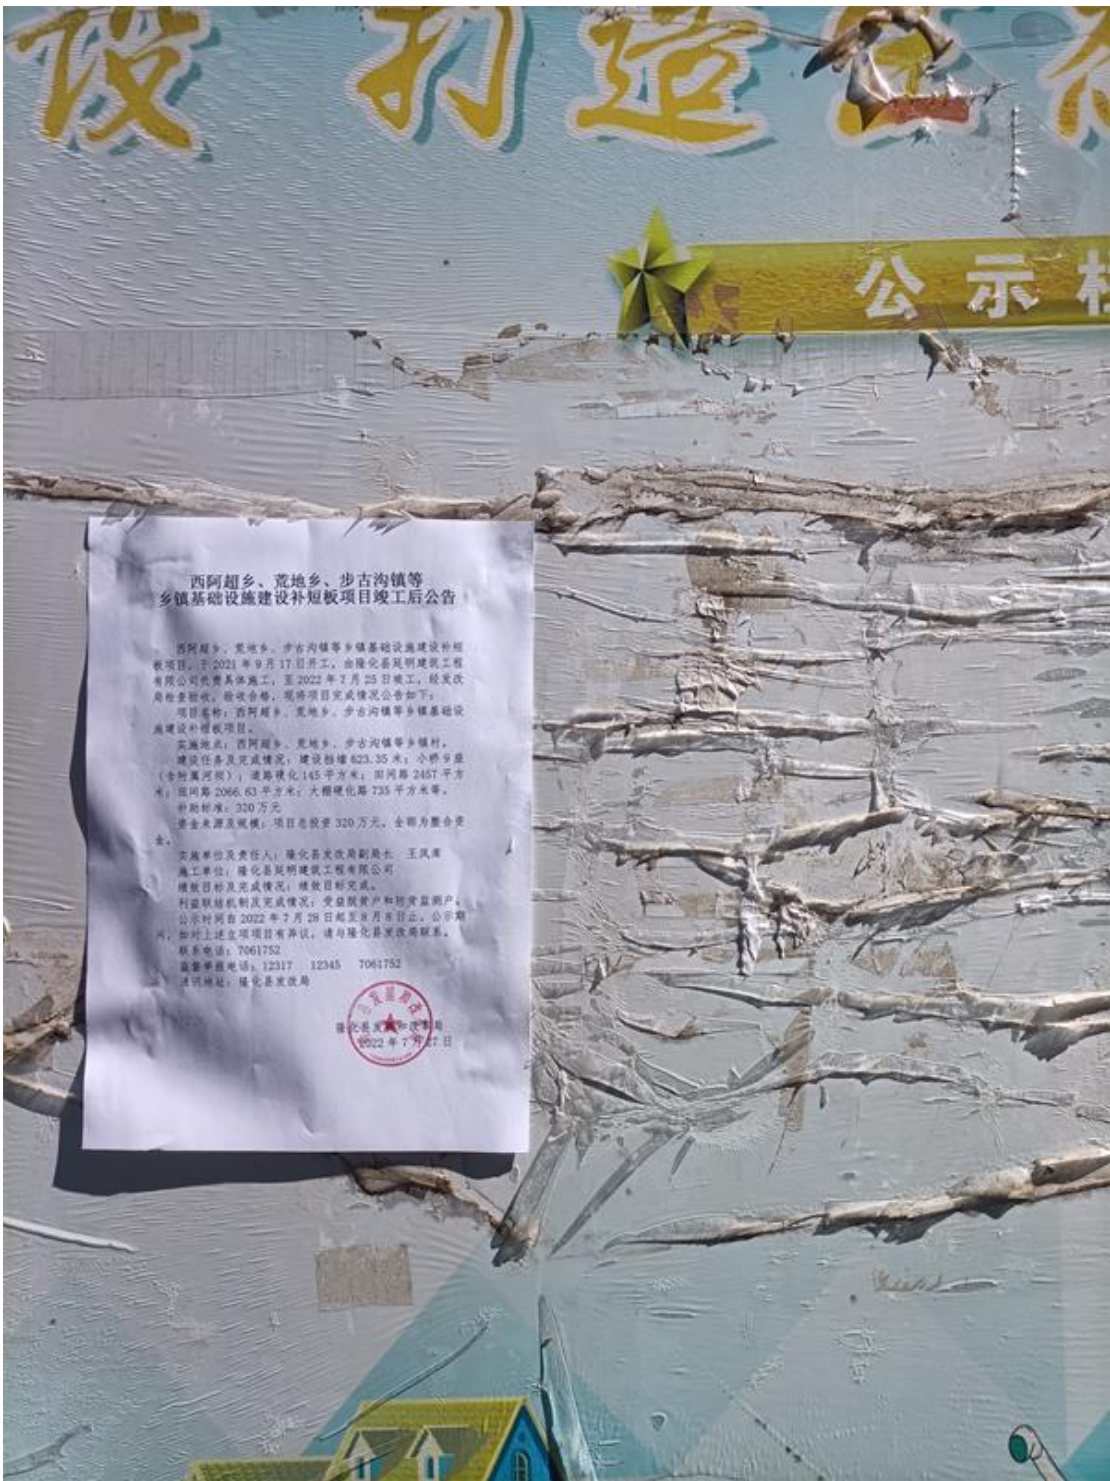 设 打造
公示栏
西阿超乡、荒地乡、步古沟镇等
乡镇基础设施建设补短板项目竣工后公告
西阿超乡、荒地乡、步古沟镇等乡镇基础设施建设补短
板项目，于2021年9月17日开工，由隆化县延明建筑工程
有限公司负责具体施工，至2022年7月25日竣工，经发改
局检查验收，验收合格，现将项目完成情况公告如下：
项目名称：西阿超乡、荒地乡、步古沟镇等乡镇基础设
施建设补短板项目。
实施地点：西阿超乡、荒地乡、步古沟镇等乡镇村。
建设任务及完成情况：建设挡墙623.35米；小桥9座
（含附属河坝）；道路硬化145平方米；田间路2457平方
米；田间路2066.63平方米；大棚硬化路735平方米等。
补助标准：320万元
资金来源及规模：项目总投资320万元，全部为整合资
金。
实施单位及责任人：隆化县发改局副局长 王凤库
施工单位：隆化县延明建筑工程有限公司
绩效目标及完成情况：绩效目标完成。
利益联结机制及完成情况：受益脱贫户和防贫监测户。
公示时间自2022年7月28日起至8月8日止，公示期
间，如对上述立项项目有异议，请与隆化县发改局联系。
联系电话：7061752
监督举报电话：12317 12345 7061752
通讯地址：隆化县发改局
隆化县发展和改革局
2022年7月27日